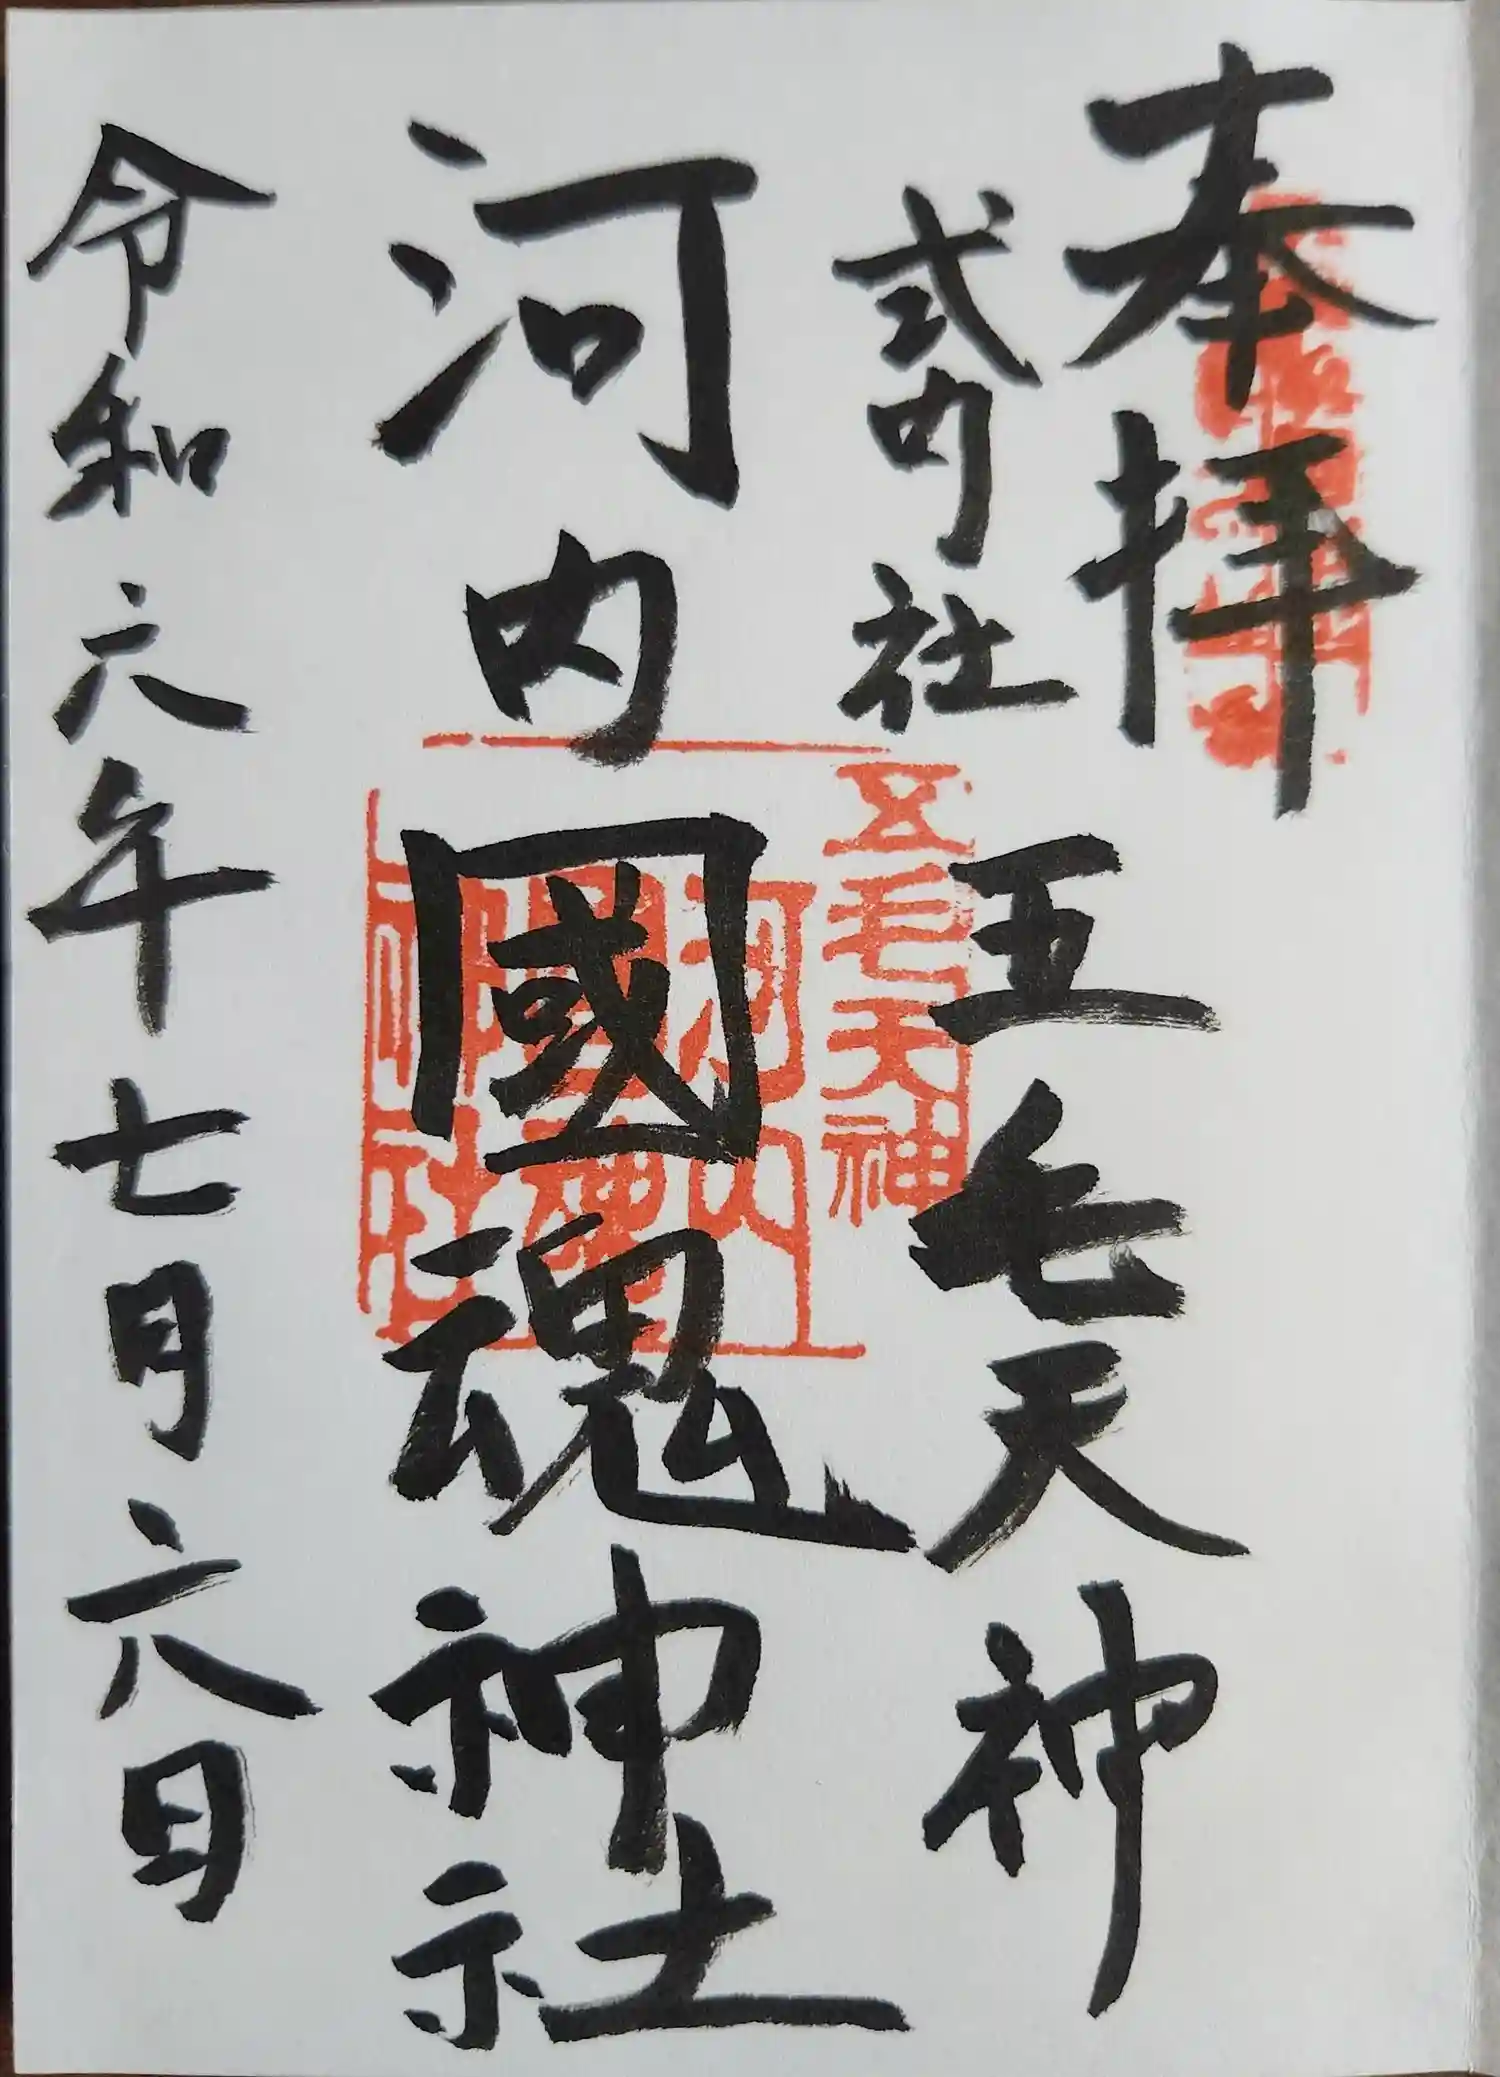 奉拝
式内社
五毛天神
河内國魂神社
令和六年七月六日
五毛天神
河内
神社